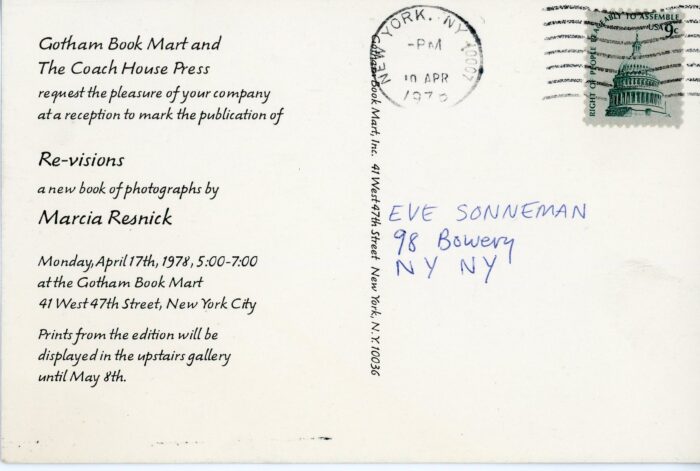 Gotham Book Mart and
The Coach House Press
request the pleasure of your company
at a reception to mark the publication of
Re-visions
a new book of photographs by
Marcia Resnick
Monday, April 17th, 1978, 5:00-7:00
at the Gotham Book Mart
41 West 47th Street, New York City
Prints from the edition will be
displayed in the upstairs gallery
until May 8th.
Gotham Book Mart, Inc. 41 West 47th Street New York, N.Y. 10036
NEW YORK, NY
-PM
10 APR
RIGHT OF PEOPLE PEACEABLY TO ASSEMBLE
USA 9c
EVE SONNEMAN
98 Bowery
NY NY